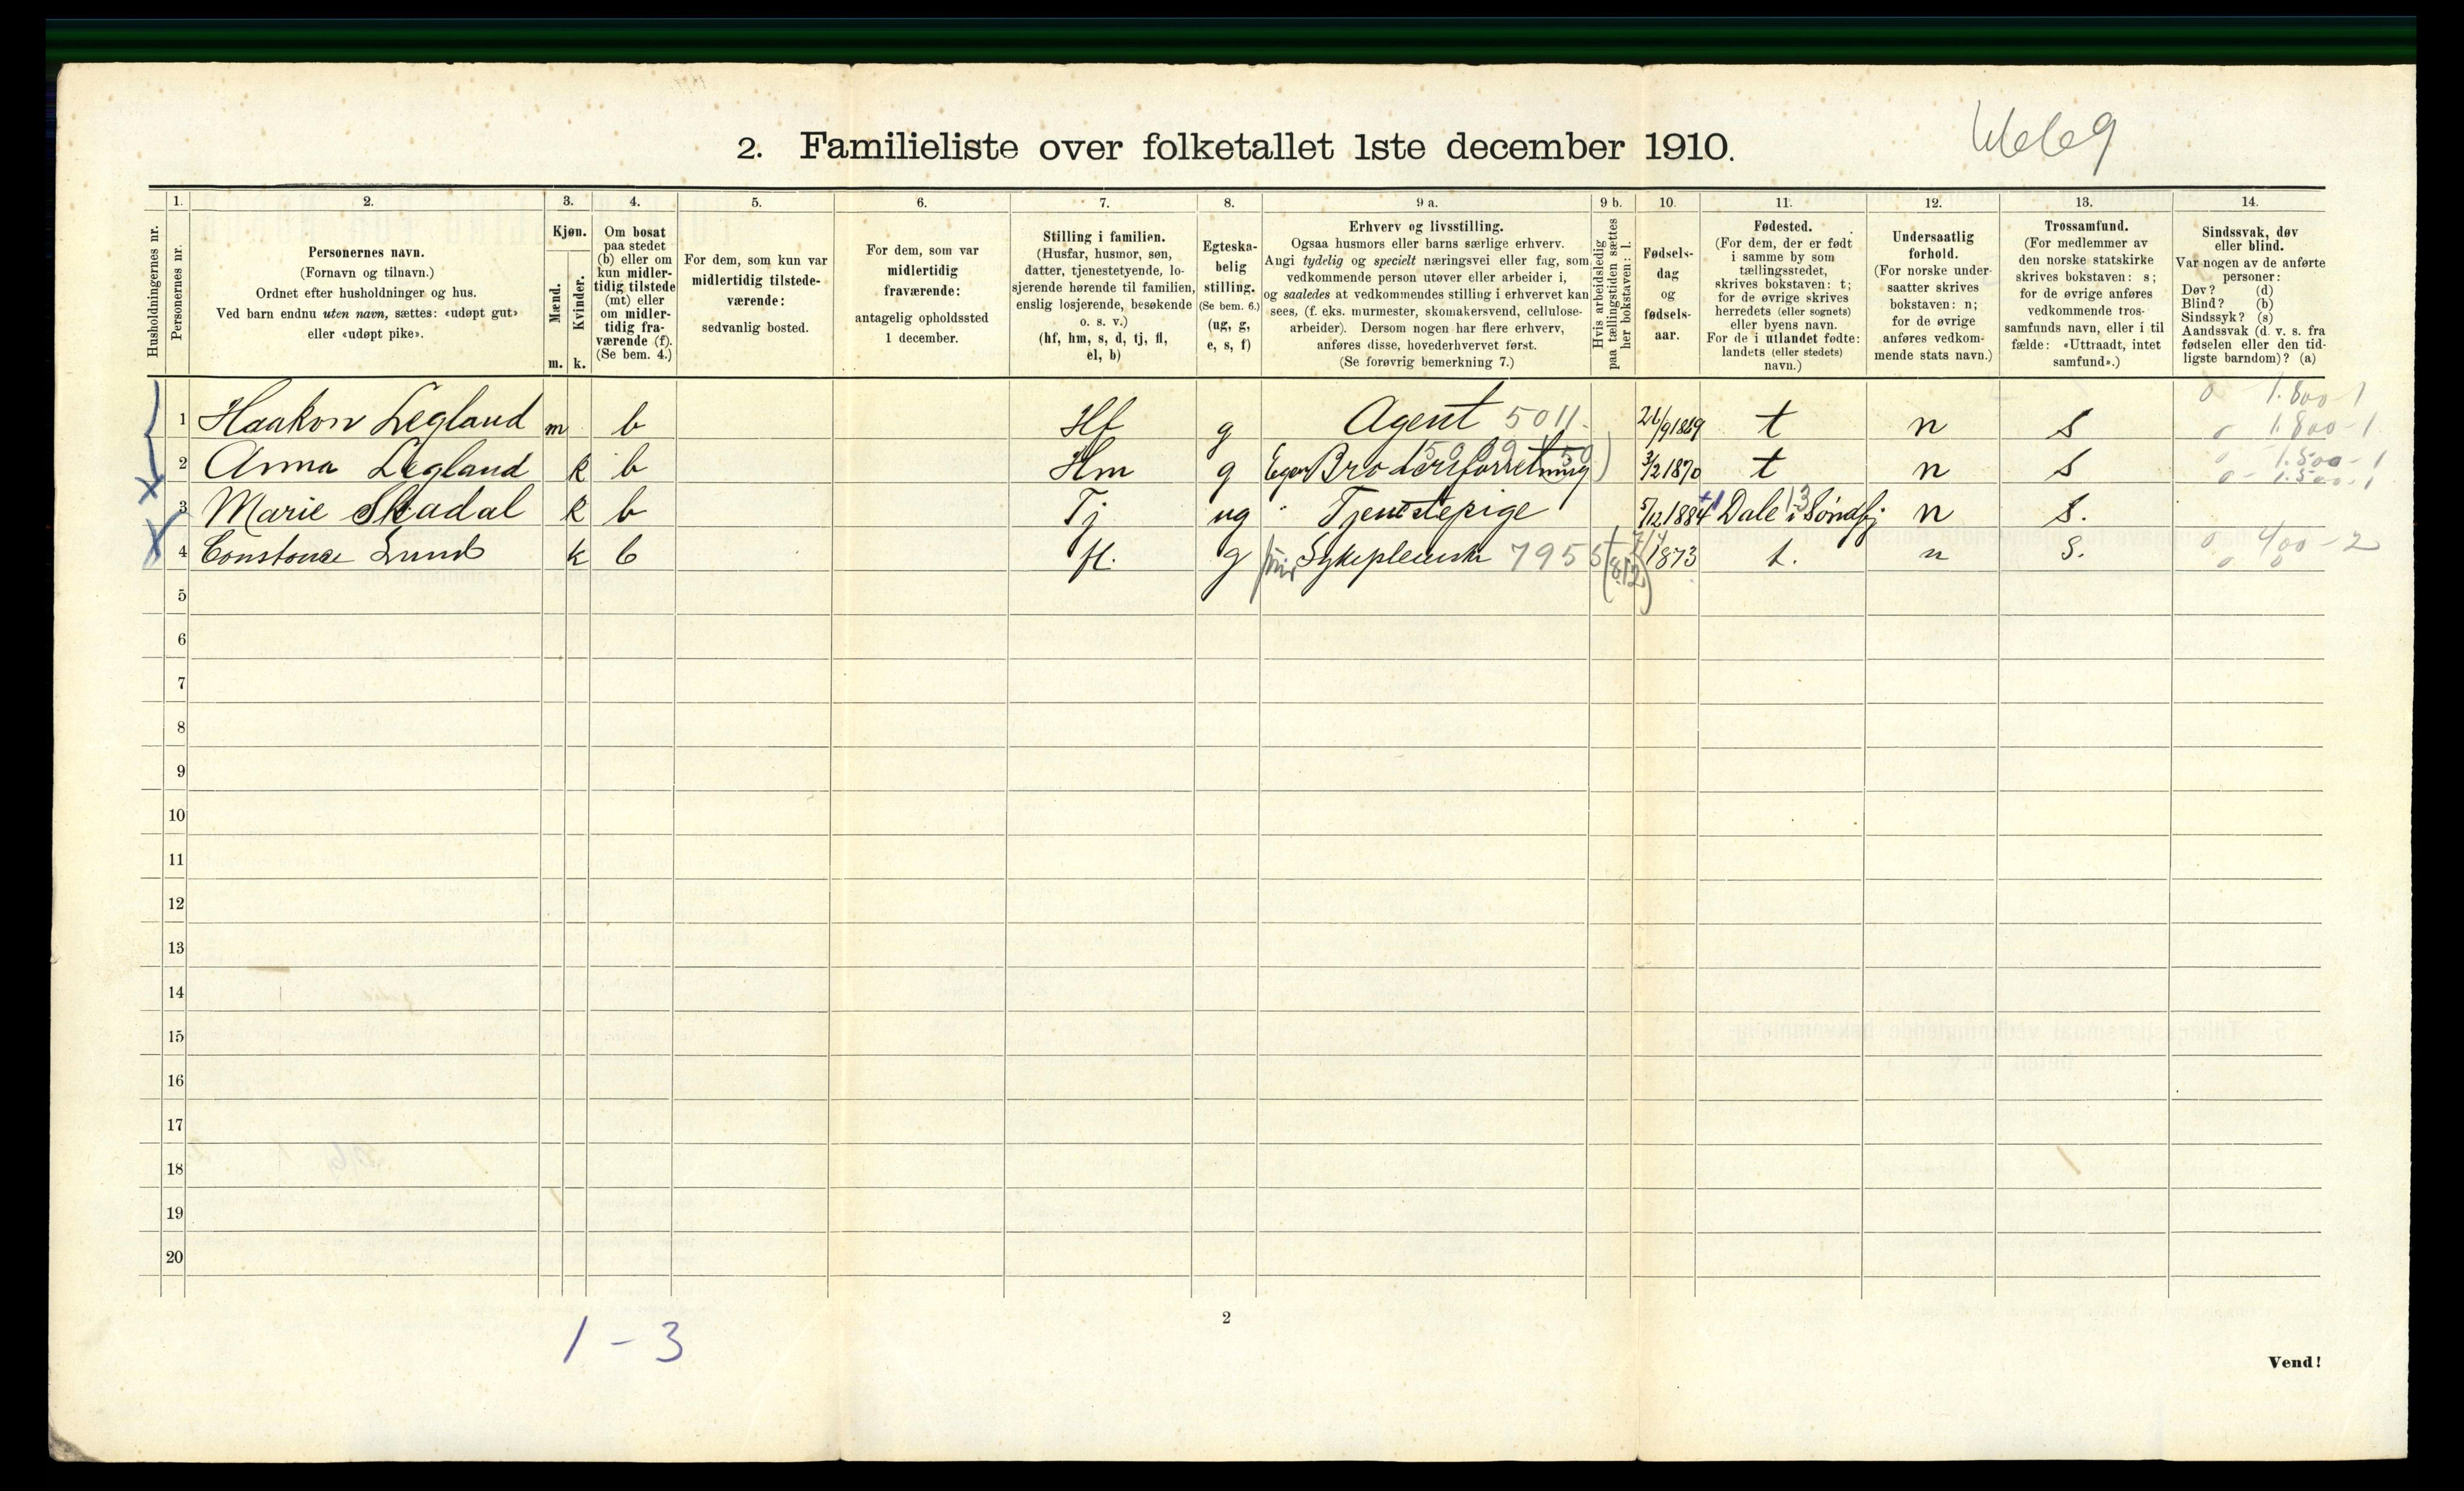 2. Familieliste over folketallet 1ste december 1910.
Husholdningernes nr.
1.
Personernes nr.
2.
Personernes navn.
(Fornavn og tilnavn.)
Ordnet efter husholdninger og hus.
Ved barn endnu uten navn, sættes: «udøpt gut»
eller «udøpt pike».
3.
Kjøn.
Mænd.
Kvinder.
m. k.
4.
Om bosat
paa stedet
(b) eller om
kun midler-
tidig tilstede
(mt) eller
om midler-
tidig fra-
værende (f).
(Se bem. 4.)
5.
For dem, som kun var
midlertidig tilstede-
værende:
sedvanlig bosted.
6.
For dem, som var
midlertidig
fraværende:
antagelig opholdssted
1 december.
7.
Stilling i familien.
(Husfar, husmor, søn,
datter, tjenestetyende, lo-
sjerende hørende til familien,
enslig losjerende, besøkende
o. s. v.)
(hf, hm, s, d, tj, fl,
el, b)
8.
Egteska-
belig
stilling.
(Se bem. 6.)
(ug, g,
e, s, f)
9 a.
Erhverv og livsstilling.
Ogsaa husmors eller barns særlige erhverv.
Angi tydelig og specielt næringsvei eller fag, som
vedkommende person utøver eller arbeider i,
og saaledes at vedkommendes stilling i erhvervet kan
sees, (f. eks. murmester, skomakersvend, cellulose-
arbeider). Dersom nogen har flere erhverv,
anføres disse, hovederhvervet først.
(Se forøvrig bemerkning 7.)
9 b.
Hvis arbeidsledig
paa tællingstiden sættes
her bokstaven: l.
10.
Fødsels-
dag
og
fødsels-
aar.
11.
Fødested.
(For dem, der er født
i samme by som
tællingsstedet,
skrives bokstaven: t;
for de øvrige skrives
herredets (eller sognets)
eller byens navn.
For de i utlandet fødte:
landets (eller stedets)
navn.)
12.
Undersaatlig
forhold.
(For norske under-
saatter skrives
bokstaven: n;
for de øvrige
anføres vedkom-
mende stats navn.)
13.
Trossamfund.
(For medlemmer av
den norske statskirke
skrives bokstaven: s;
for de øvrige anføres
vedkommende tros-
samfunds navn, eller i til
fælde: «Uttraadt, intet
samfund».)
14.
Sindssvak, døv
eller blind.
Var nogen av de anførte
personer:
Døv? (d)
Blind? (b)
Sindssyk? (s)
Aandssvak (d. v. s. fra
fødselen eller den tid-
ligste barndom)? (a)
0 - 1.800 - 1
1 Haakon Legland m b Hf g Agent 5011. 26/9 1869 t n s 0 1.800 - 1
2 Anna Legland k b Hm g Egen Broderiforretning 3/2 1870 t n s 0 1.500 - 1
0 - 1.500 - 1
3 Marie Skadal k b Tj ug Tjenestepige 5/12 1884 Dale i Søndfj n s.
4 Constance Lund k b fl. g Sykepleierske 7955 1873 t. n s. 0 400 - 2
0 0
5
6
7
8
9
10
11
12
13
14
15
16
17
18
19
20
2
1 - 3
Vend!